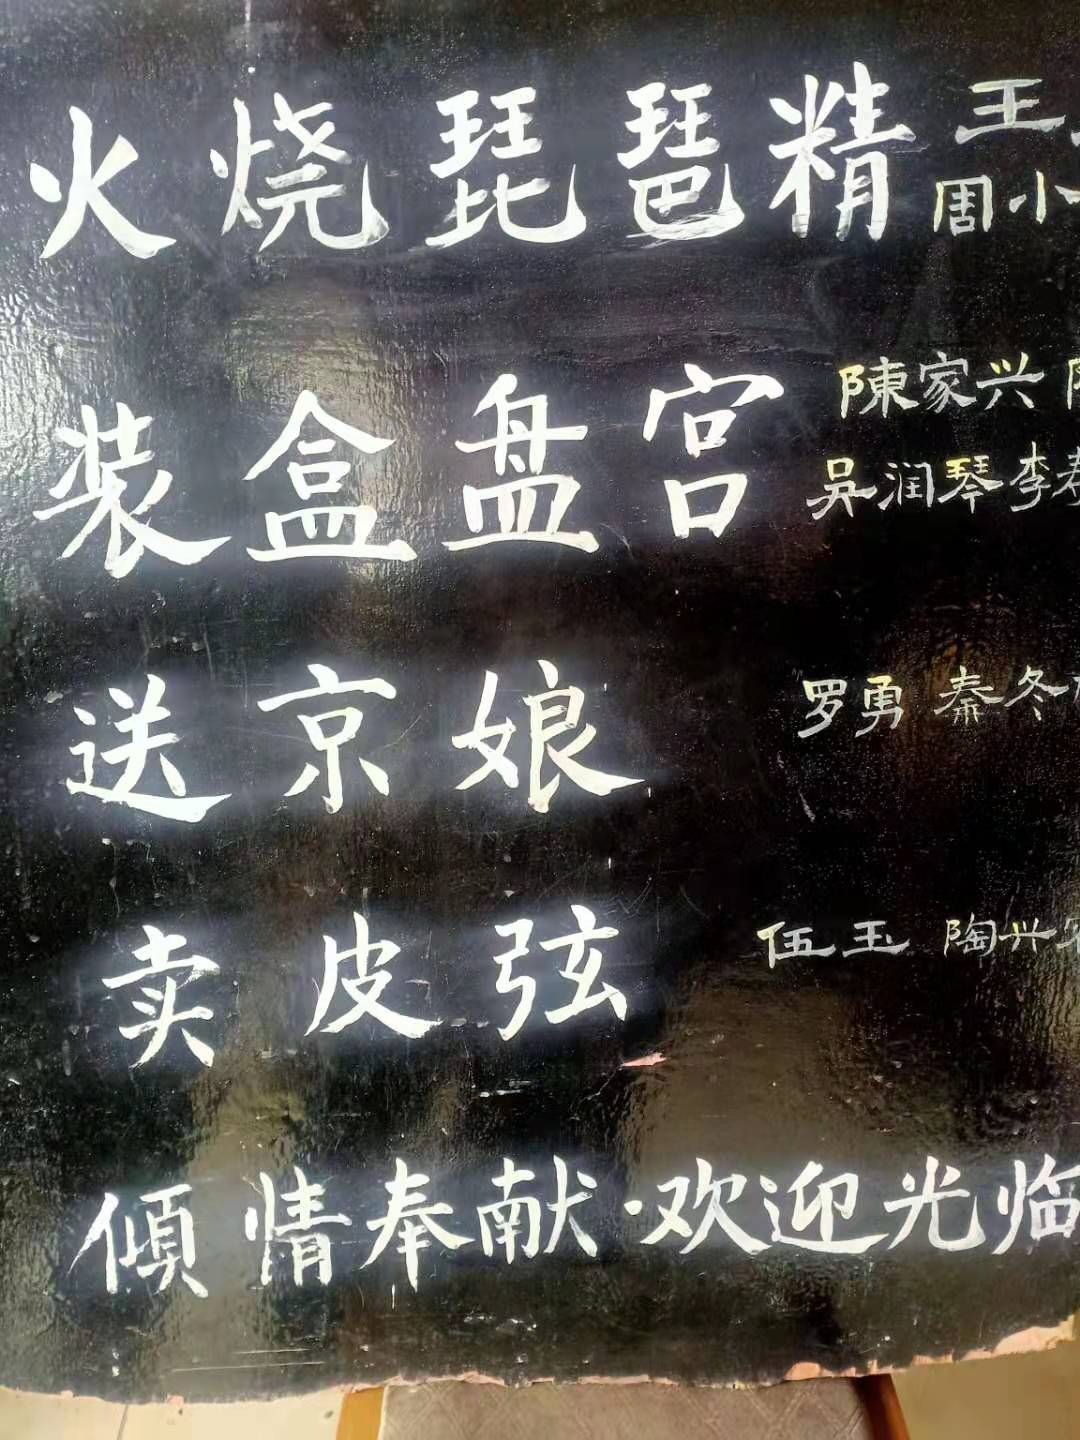 火烧琵琶精 王
周小
装盒盘宫 陳家兴
吴润琴李春
送京娘 罗勇 秦冬
卖皮弦 伍玉 陶兴
倾情奉献·欢迎光临